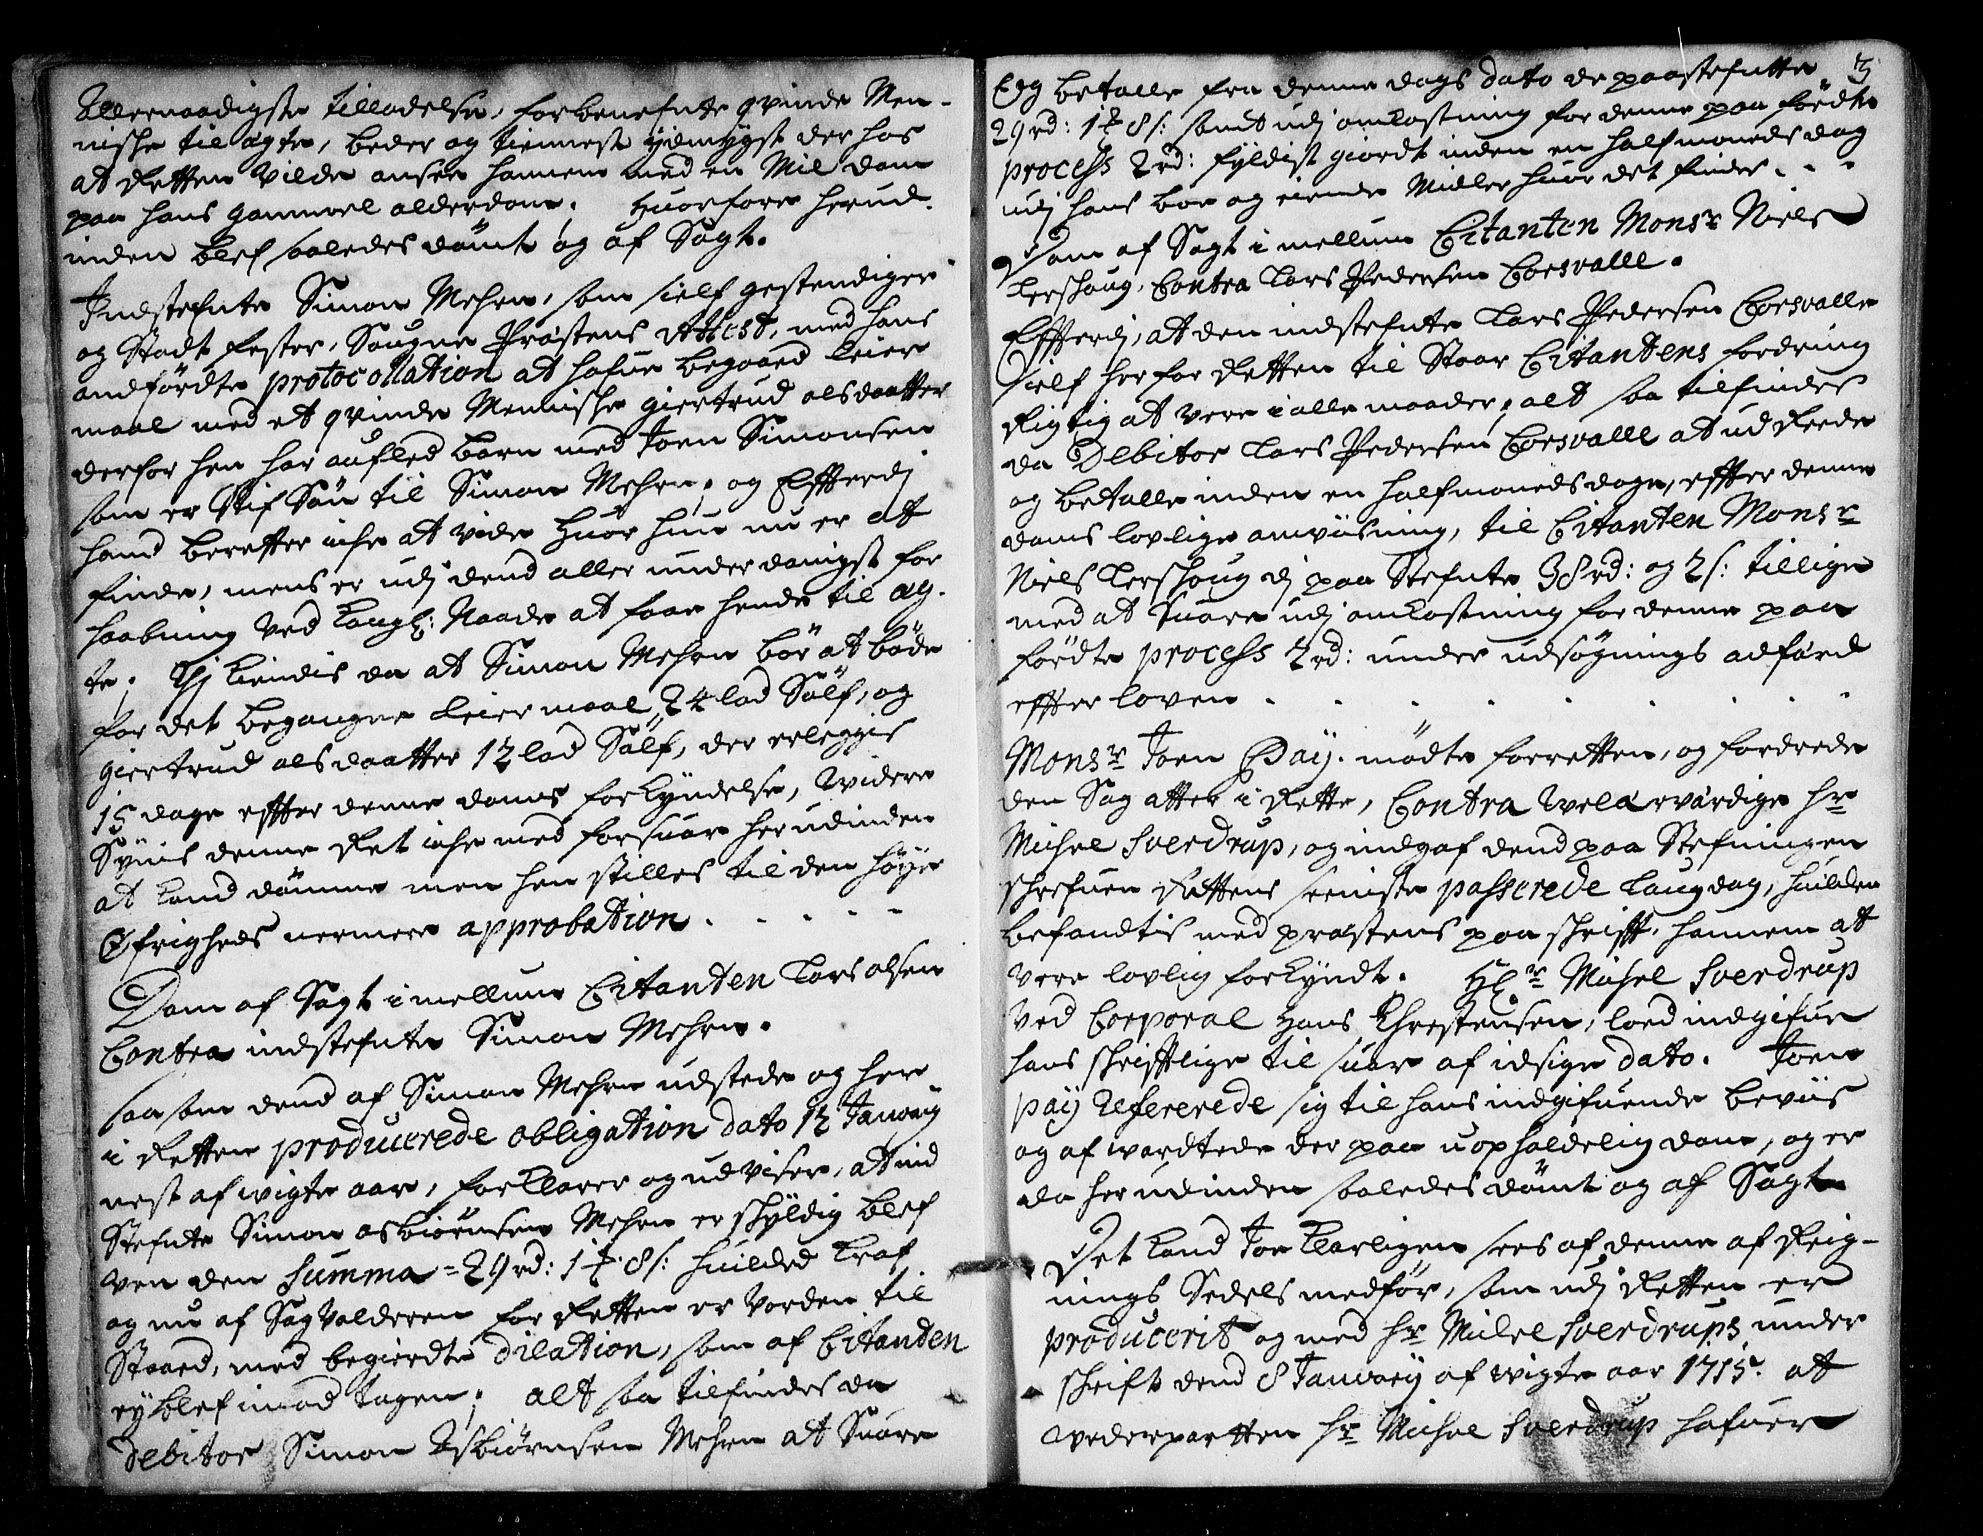 Allernaadigste tilladelse, forbenefnte qvinde Men-
niske til ægte, beder og tiennest ydmygst der hos
at Retten vilde ansee hannem med en Mil dom
paa hans gammel alderdom. Huorfore herud-
inden blef saaledes dömt og af Sagt.
Indstefnte Simon Mehrn, som sielf gestendiger
og Stadt fester, Sougne Præstens Attest, med hans
andførdte protocollation at hafue begaaed Leier
maal med et qvinde Menniske Giertrud olsdaatter
derfor hen har aufled barn med Joen Simonsen
som er Stif Søn til Simon Mehrn, og Effterdj
hand beretter iche at vide Huor hun nu er att
finde, mens er udj dend aller underdanigst for
haabning ved Kongl: Naade at faae hende til æg-
te. Thj kiendis da at Simon Mehrn bör at böde
for det begangne Leiermaal 24 lod Sölf, og
Giertrud olsdaatter 12 lod Sölf, der erleggis
15 dage effter denne doms forkyndelse, Widere
Synis denne Ret iche med forsuar herudinden
at kand dömme men hen stilles til den höye
Øfrigheds nermere approbation . . . . .
Dom af Sagt imellum Citanten Lars olsen
Contra indstefnte Simon Mehrn.
saasom dend af Simon Mehrn udstede og her
i Retten producerede obligation dato 12 Janvarij
nest af wigte aar, forklarer og udviser, at ind
Stefnte Simon asbiörnsen Mehrn er skyldig blef
ven den Summa = 29 rd: 1 ƒ 8 s: huilded kraf
og nu af Sagvolderen for Retten er vorden til
Staaed, med begierdte dilation, som af Citanden
ey blef imod tagen. alt saa tilfindes da
debitor Simon Asbiörnsen Mehrn at Suare
3
Og betalle fra denne dags dato de paastefnte
29 rd: 1 ƒ 8 s: samt udj omkostning for denne paa förde
process 2 rd: fyldist giordt inden en half moneds dag
udj hans boe og eiende Midler huor det findes . . .
Dom af Sagt i mellum Citanten Monsr Niels
Lerskoug, Contra Lars Pedersen Corsvalle.
Effterdj, at den indstefnte Lars Pedersen Corsvalle
sielf her for Retten til Staar Citantens fordring
Rigtig at vere i alle maader, alt saa tilfindes
da Debitor Lars Pedersen Corsvalle at ud Reede
og betalle inden en half moneds dage, effter denne
doms lovlige anviisning, til Citanten Monsr
Niels Lerskoug dj paa Stefnte 38 rd: og 2 s: tillige
med at Suare udj omkostning for denne paa
fördte process 2 rd: under udsøgnings adfærd
effter loven . . . . . . . .
Monsr Joen Pay. mödte forretten, og fordrede
den Sag atter i Rette, Contra Welærværdige hr
Michel Sverdrup, og indgaf dend paa Stefningen
skrefuen Rettens seeniste passerede Laugdag, huilden
befandtis med præstens paaskrifft, hannem at
vere lovlig forkyndt. Hr Michel Sverdrup
ved Corporal Hans Christensen, loed indgifue
hans skrifftlige til suar af idsige dato. Joen
Pay Refererede sig til hans indgifuende beviis
og af wardtede der paa uopholdelig dom, og er
da herudinden saaledes dömt og af Sagt
Det kand Joe klarligen sees af denne af Reig-
nings Sedels medför, som udj Retten er
producerit og med hr Michel Sverdrups under
skrift dend 8 Janvarij af wigte aar 1715. att
wederpartten hr Michel Sverdrup hafuer